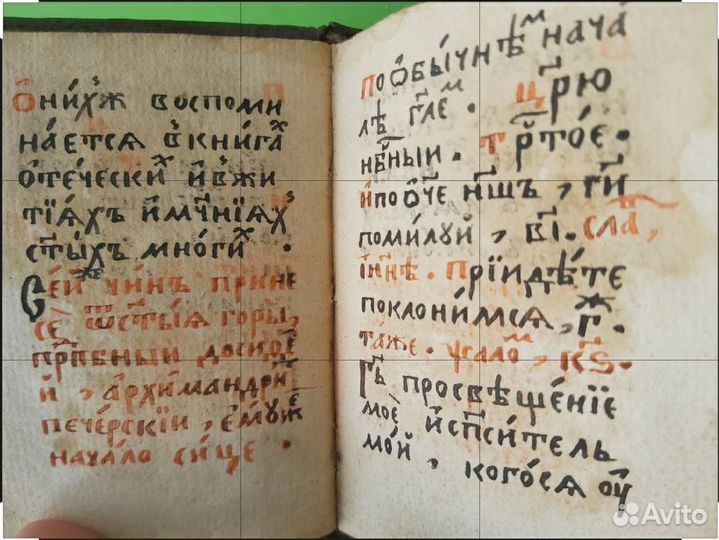 Ѻни́хже воспоми
на́ется в̾кни́гах
ѻте́ческих и҆в̾жи
тїѧ́хъ и҆мч҃нїѧх
ст҃ы́хъ мно́гих .
Се́й чи́нъ прине
се́ ѿст҃ы́ѧ горы̀,
прп҃бныи досиѳе
й , а҆рхима́ндрит
пече́рскїи , є҆мꙋже
нача́ло си́це .
По ѻ҆бы́чнѣм нача
лѣ гл҃ем . Цр҃ю
нбⷭ҇ныи . трⷭ҇то́е .
и҆по ѻ҆́ч҃е н҃шъ , гдⷭ҇и
поми́лꙋй , в҃і . сла́ва ,
и҆ нн҃ѣ . Прїиди́те
поклони́мсѧ , г҃ж .
та́же . ѱало́м , к҃ѕ .
Гдⷭ҇ь просвѣще́нїе
моѐ и҆сп҃си́тель
мо́й . кого́сѧ ᲂу҆
Avito